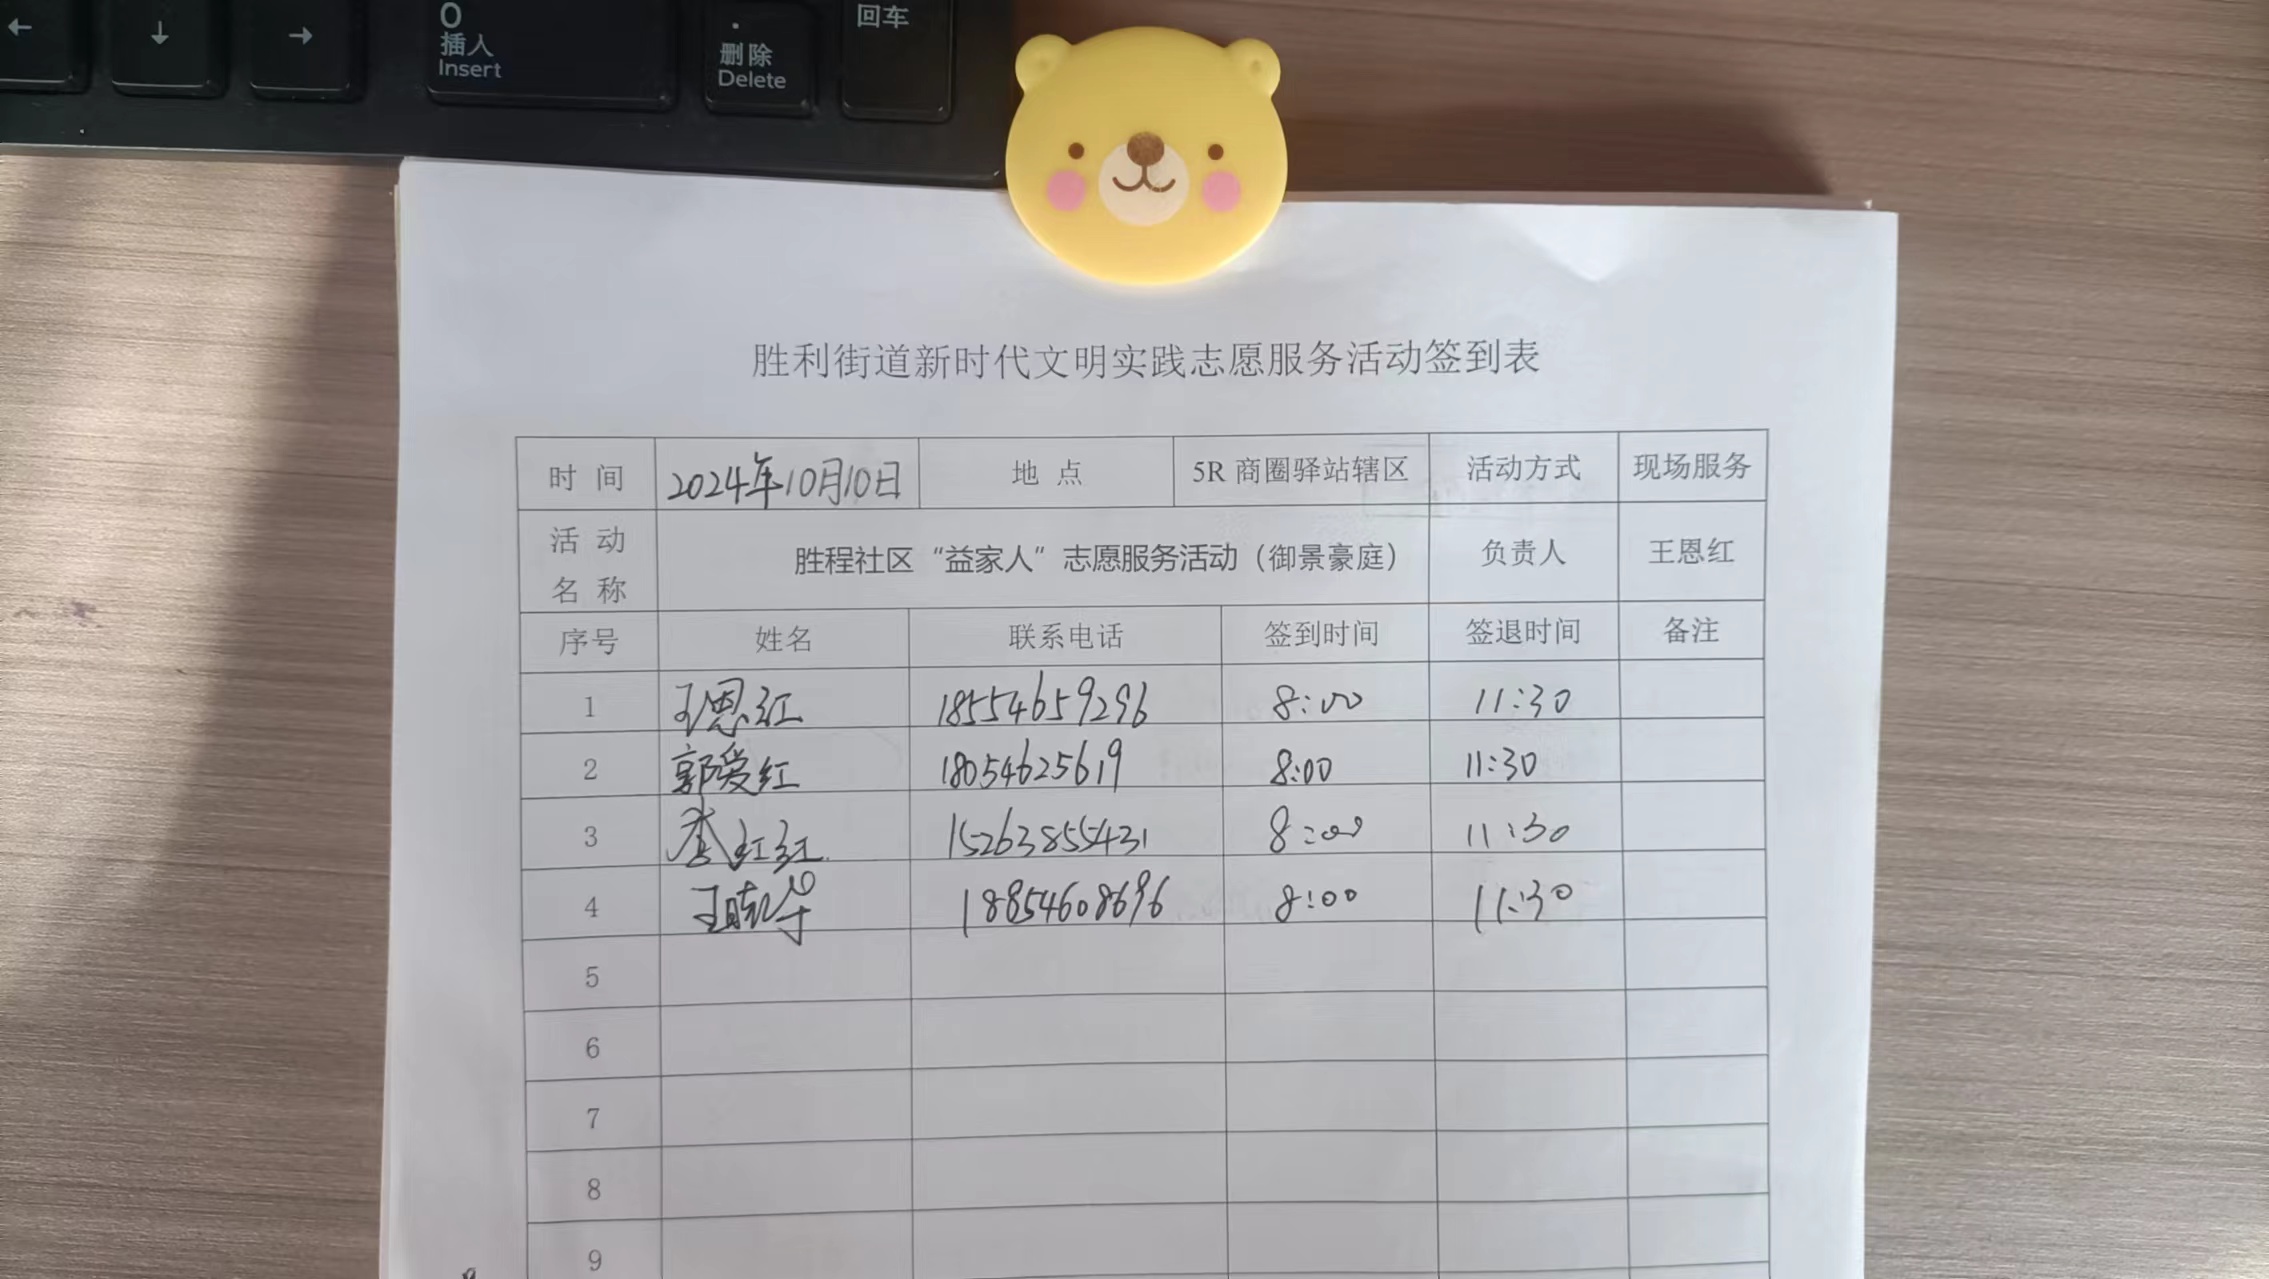 0
插入
Insert
.
删除
Delete
回车
胜利街道新时代文明实践志愿服务活动签到表
时间 2024年10月10日 地点 5R商圈驿站辖区 活动方式 现场服务
活动名称 胜程社区“益家人”志愿服务活动（御景豪庭） 负责人 王恩红
序号 姓名 联系电话 签到时间 签退时间 备注
1 王恩红 18554659296 8:00 11:30
2 郭爱红 18054625619 8:00 11:30
3 李红红 15263855431 8:00 11:30
4 18854608696 8:00 11:30
5
6
7
8
9